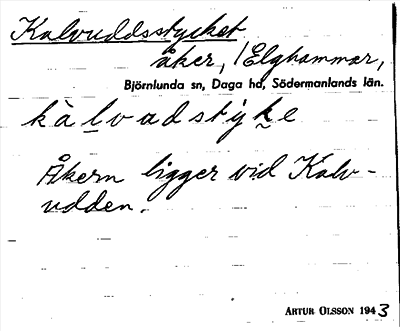 Kalvuddsstycket
åker, / Elghammar,
Björnlunda sn, Daga hd, Södermanlands län.
kàlvadstỳke
Åkern ligger vid Kalv-
udden.
ARTUR OLSSON 1943